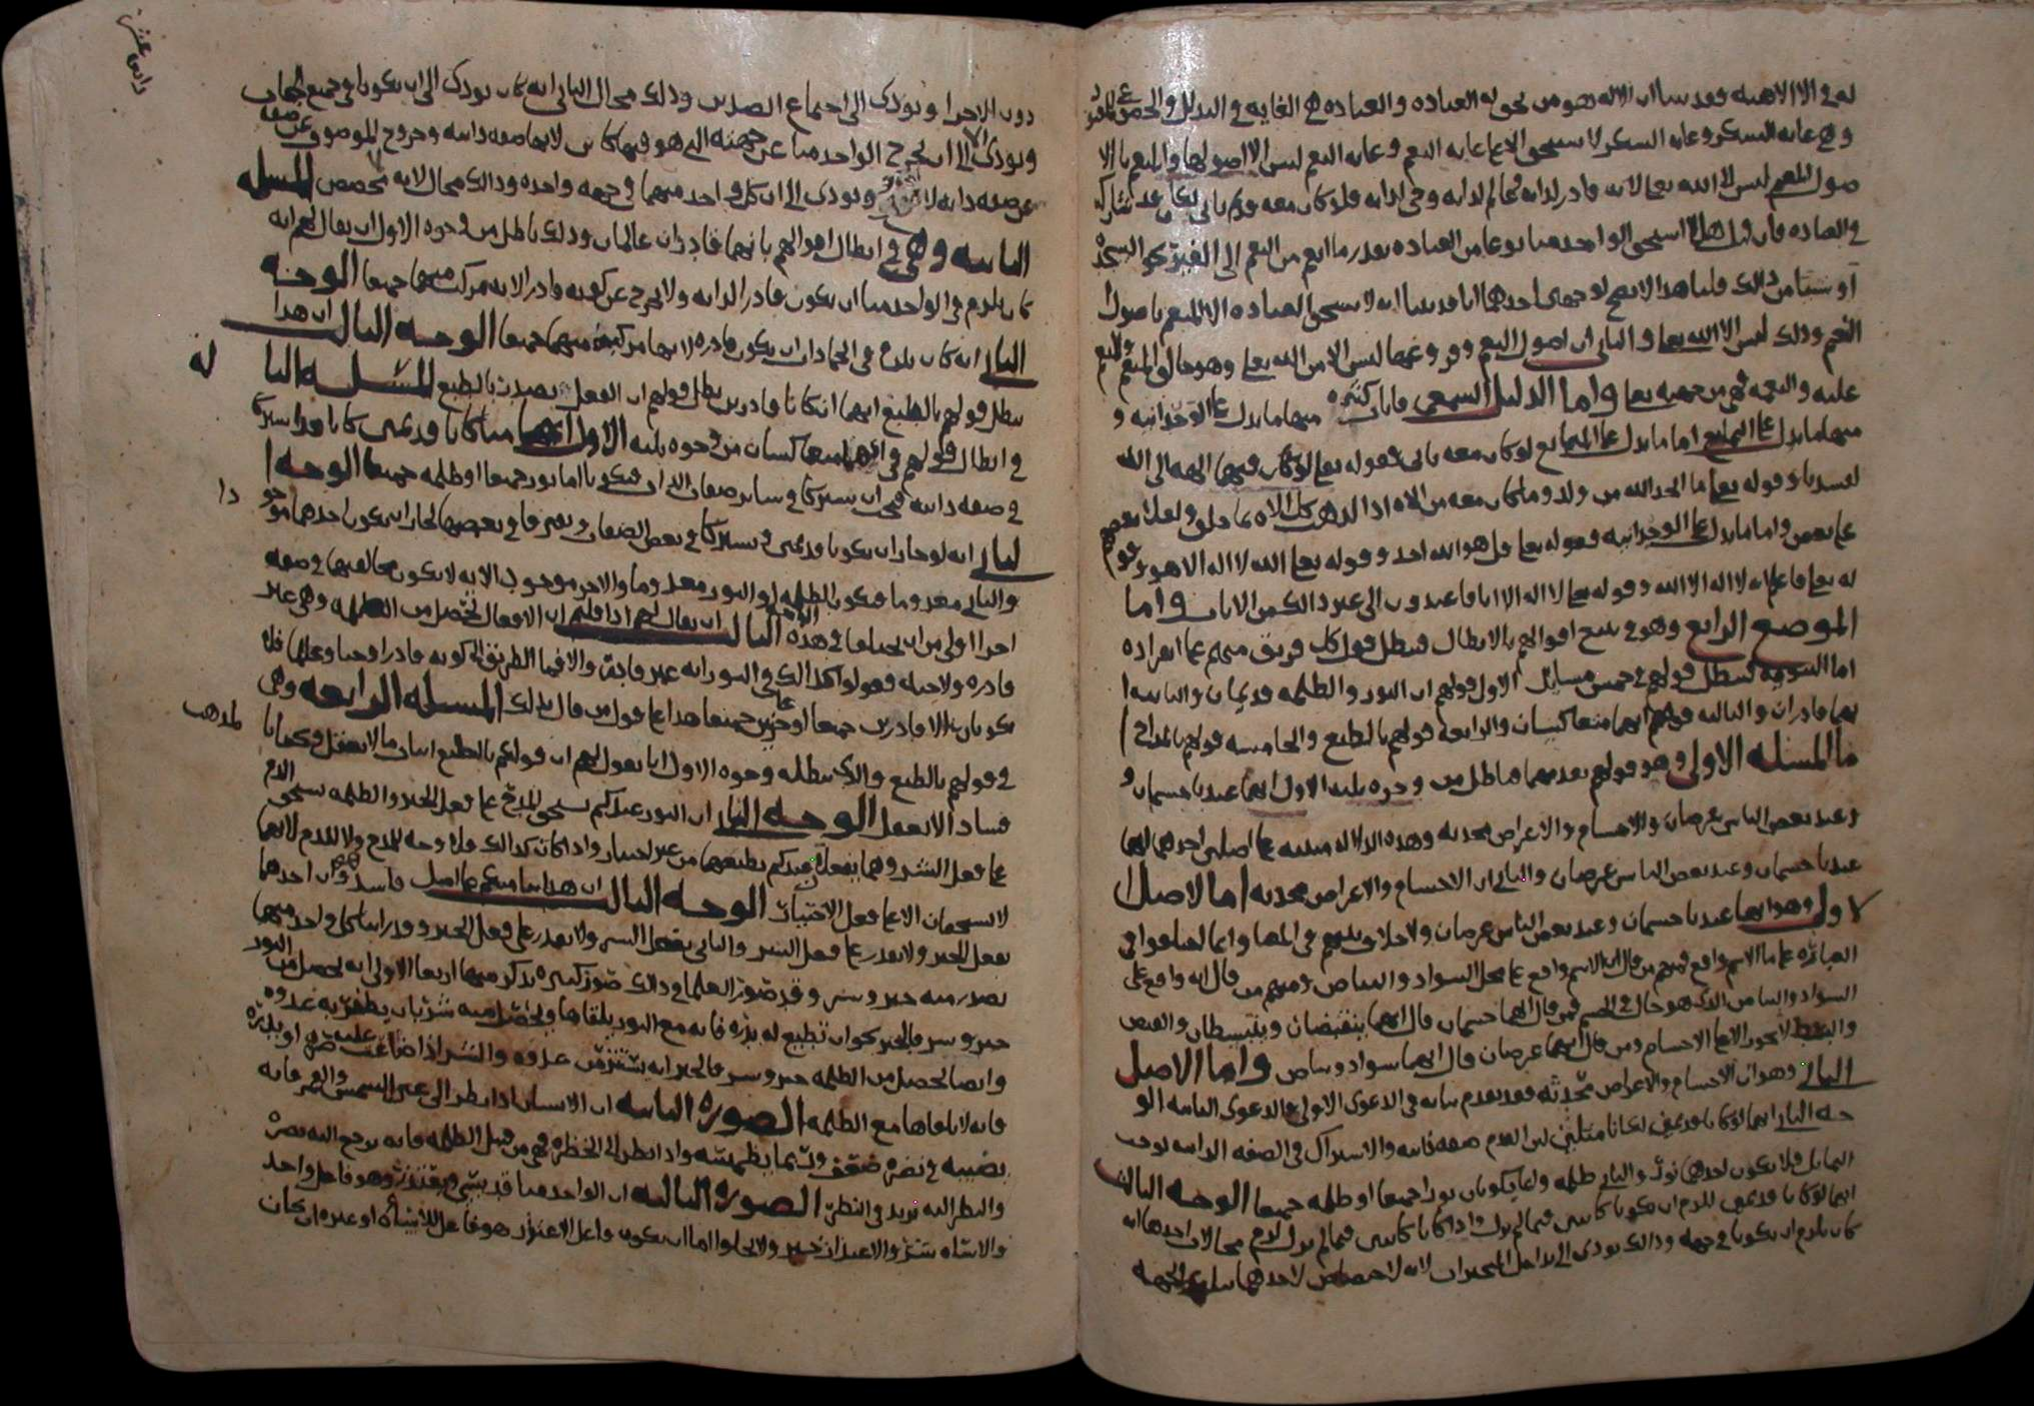 له في الالاهيه وقد بينا ان الاله هو من تحق له العباده والعباده هي الغايه في التذلل والخضوع
وهي غايه الشكر وغايه الشكر لا تستحق الا على غايه النعم وغايه النعم ليس الا اصولها والمنعم باالا
صول للنعم ليس الا الله تعالى لانه قادر لذاته وعالم لذاته وحي لذاته فلو كان معه قديم ثاني
في العباده فان قيل هلا استحق الواحد منا نوعا من العباده بقدر ما انعم من النعم الى الغير نحو السجده
او شيئا من ذالك قلنا هذا لا يصح لوجهين احدهما انا قد بينا انه لا يستحق العباده الا المنعم باصول
النعم وذلك ليس الا الله تعالى والثاني ان اصول النعم وفروعها ليس الا من الله تعالى وهو خالق المنعم والمنعم
عليه والنعمه فهي من جهته تعالى واما الدليل السمعي فايات كثيره منها ما يدل على الوحدانيه و
منها ما يدل على التمانع اما ما يدل على التمانع لو كان معه ثاني فقوله تعالى لو كان فيهما الهه الا الله
لفسدتا وقوله تعالى ما اتخذ الله من ولد وما كان معه من الاه اذا لذهب كل الاه بما خلق ولعلا بعضهم
على بعض واما ما يدل على الوحدانيه فقوله تعالى قل هو الله احد وقوله تعالى الله لا اله الا هو وقو
له تعالى فاعلم انه لا اله الا الله وقوله تعالى لا اله الا انا فاعبدون الى غير ذالك من الايات واما
الموضع الرابع وهو في تتبع اقوالهم بالابطال فنبطل قول كل فريق منهم على انفراده
اما الثنويه فنبطل قولهم في خمس مسايل الاولى قولهم ان النور والظلمه قديمان والثانيه ا
نهما قادران والثالثه قولهم انهما منعاكسان والرابعه قولهم بالطبع والخامسه قولهم بالمزاج ا
ما المسئله الاولى وهو قولهم بقدمهما فباطل من وجوه ثلثه الاول انهما عندنا جسمان و
وعند بعض الناس عرضان والاجسام والاعراض محدثه وهذه الدلاله مبنيه على اصلين احدهما انهما
عندنا جسمان وعند بعض الناس عرضان والثاني ان الاجسام والاعراض محدثه اما الاصل
الاول وهو انهما عندنا جسمان وعند بعض الناس عرضان ولا خلاف بينهم في المعنا وانما اختلفوا في
العباره على ما الاسم واقع فمنهم من قال ان الاسم واقع على محل السواد والبياض ومنهم من قال انه واقع على
السواد والبياض الذي هو حال في الجسم فمن قال انهما جسمان قال انهما ينقبضان وينبسطان والقبض
والبسط لا يجوز الا على الاجسام ومن قال انهما عرضان قال انهما سواد وبياض واما الاصل
الثاني وهو ان الاجسام والاعراض محدثه فقد تقدم بيانه في الدعوى الاولى والدعوى الثانيه الو
جه الثاني انهما لو كانا قديمين لكانا مثلين لان القدم صفه ذاتيه والاشتراك في الصفه الذاتيه يوجب
التماثل فلا يكون احدهما نورا والثاني ظلمه ولكانا يكونان نورا جميعا او ظلمه جميعا الوجه الثالث
انهما لو كانا قديمين للزم ان يكونا كاينين فيما لم يزل واذا كانا كاينين فيما لم يزل لزم محالات احدها انه
كان يلزم ان يكونا في جهه وذالك يودي الى تداخل المتحيزات لانه لا اختصاص لاحدهما بتلك الجهه
دون الاخرا ويودي الى اجتماع الضدين وذلك محال الثاني انه كان يودي الى ان يكونا في جميع الجهات
ويودي الى ان لا يخرج الواحد منا عن جهته التي هو فيها كاين لانها صفه ذاتيه وخروج الموصوف عن صفه
من صفه ذاته لا يجوز ويودي الى ان كل واحد منهما في جهه واحده وذالك محال لانه تخصص المسئله
الثانيه وهي في ابطال قولهم بانهما قادران عالمان وذلك باطل من وجوه الاول ان يقال لهم انه
كان يلزم في الواحد منا ان يكون قادر لذاته ولا يخرج عن كونه قادرا لانه مركب منهما جميعا الوجه
الثاني انه كان يلزم في الجمادات ان يكون قادره لانها مركبه منهما جميعا الوجه الثالث ان هذا
يبطل قولهم بالطبع لانهما ان كانا قادرين بطل قولهم ان الفعل يصدر بالطبع المسئله الثا
لثه
في ابطال قولهم في انهما منعاكسان من وجوه ثلثه الاول انهما متا كانا قديمين كانا قد اشتركا
في صفه ذاتيه فيجب ان يشتركا في ساير صفات الذات فيكونا اما نورا جميعا او ظلمه جميعا الوجه ا
لثاني انه لو جاز ان يكونا قديمين ويشتركا في بعض الصفات ويفترقا في بعضها لجاز ان يكون احدهما موجو
دا
والثاني معدوما فيكون الظلمه او النور معدوما والاخر موجودا لانه لا يكون مخالفتهما في صفه
اخرا اولى من ان يختلفا في هذه الوجه الثالث ان يقال لهم اذا قلتم ان الافعال تحصل من الظلمه وهي غير
قادره ولا حيه فقولوا كذالك في النور انه غير قادر والا فما الطريق الى كونه قادرا وحيا وعالما فلا
يكونان الا قادرين جميعا او حيين جميعا هذا على قول من قال بذلك المسئله الرابعه وهي
في قولهم بالطبع والذي يبطله وجوه الاول انا نقول لهم ان قولكم بالطبع اثبات ما لا يعقل وكفا بالمذهب
فسادا ان لا يعقل الوجه الثاني ان النور عندكم يستحق المدح على فعل الخير والظلمه تستحق الذم
على فعل الشر وهما يفعلان عندكم بطبعهما من غير اختيار واذا كان كذالك فلا وجه للمدح ولا للذم لانهما
لا يستحقان الا على فعل الاختيار الوجه الثالث ان هذا بنا منكم على اصل فاسد وهو ان احدهما
يفعل الخير ولا يقدر على فعل الشر والثاني يفعل الشر ولا يقدر على فعل الخير وقد راينا كل واحد منهما
يصدر منه خير وشر وقد صور العلما في ذالك صور كثيره نذكر منها اربعا الاولى انه يحصل من النور
خير وشر فالخير نحو ان تطبع له بذره فانه مع النور يلقاها ويحصل منه شر بان يظفر به عدوه
وايضا يحصل من الظلمه خير وشر فالخير انه يستتر من عدوه والشر اذا ضاعت عليه صره او بدره
فانه لا يلقاها مع الظلمه الصوره الثانيه ان الانسان اذا نظر الى عين الشمس والقمر فانه
يصيبه في نضره ضعف وربما يطمسه واذا نظر الى الخظره فهي من قبل الظلمه فانه يرجع اليه بصره
والنظر اليه يزيد في النظر الصوره الثالثه ان الواحد منا قد يسي ويعتذر وهو فاعل واحد
والاساه شر والاعتذار خير ولا يخلوا اما ان يكون فاعل الاعتذار هو فاعل الاساه او غيره ان كان